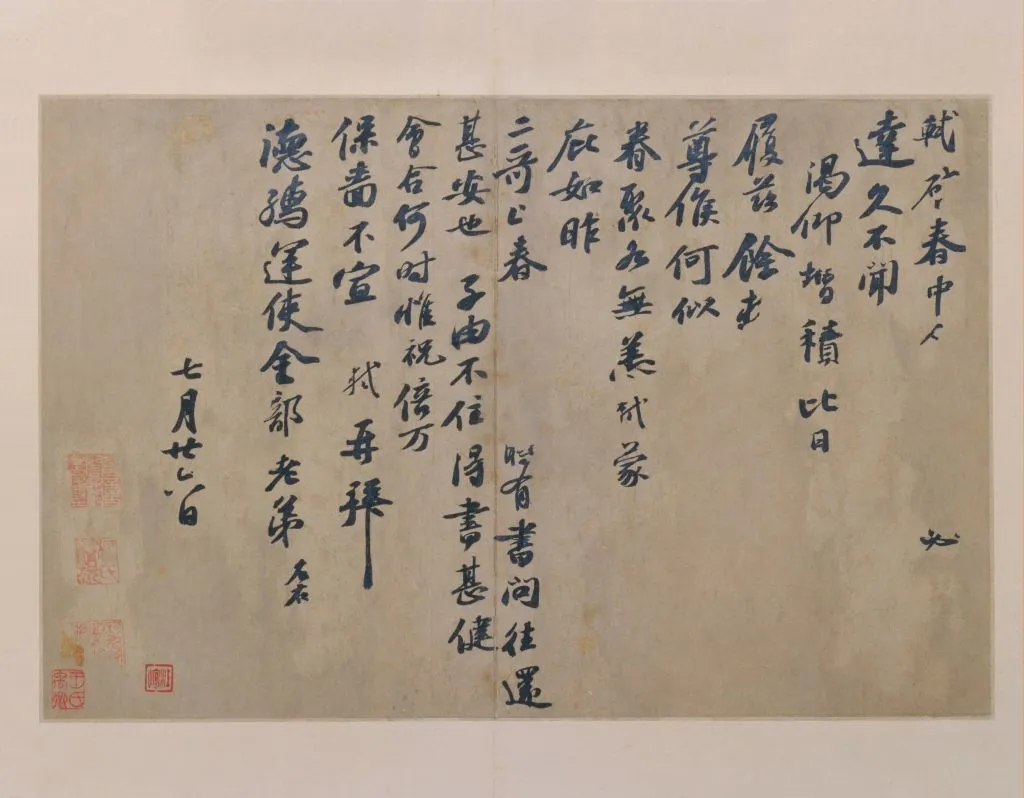 軾啓春中人
必
達久不聞
渴仰增積比日
履茲餘
尊候何似
眷聚各無恙軾蒙
庇如昨
二哥上春
有書問往還
甚安也子由不住得書甚健
會合何時惟祝倍万
保嗇不宣軾再拜
德孺運使金部老弟
七月廿六日